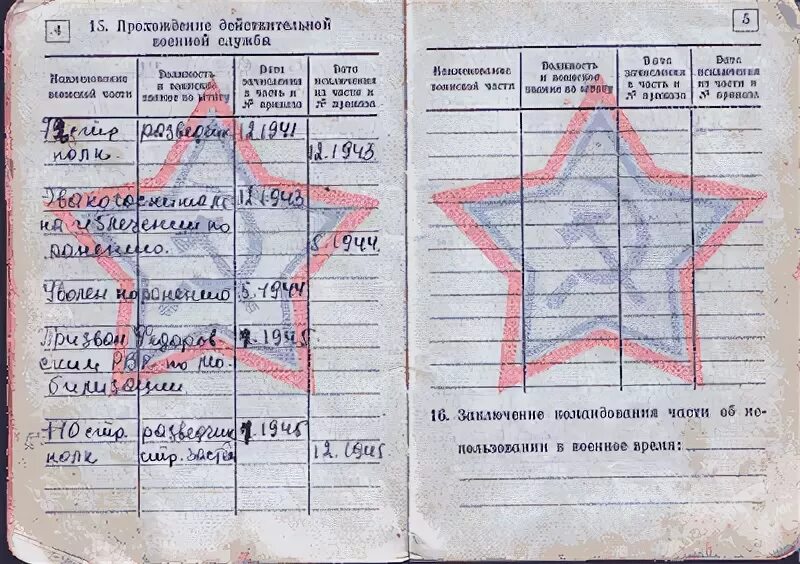 4
15. Прохождение действительной
военной службы
Наименование
воинской части
Должность
и воинское
звание по штату
Дата
зачисления
в часть и
№ приказа
Дата
исключения
из части и
№ приказа
стр. разведчик 12.1941
полк. 12.1943
Эвакогоспиталь 12.1943
на излечении по
ранению. 5.1944
Уволен по ранению 5.1944
Призван Федоров- 1945
ским РВК по мо-
билизации.
110 стр. разведчик 1945
полк стр. 12.1945
5
Наименование
воинской части
Должность
и воинское
звание по штату
Дата
зачисления
в часть и
№ приказа
Дата
исключения
из части и
№ приказа
16. Заключение командования части об ис-
пользовании в военное время: